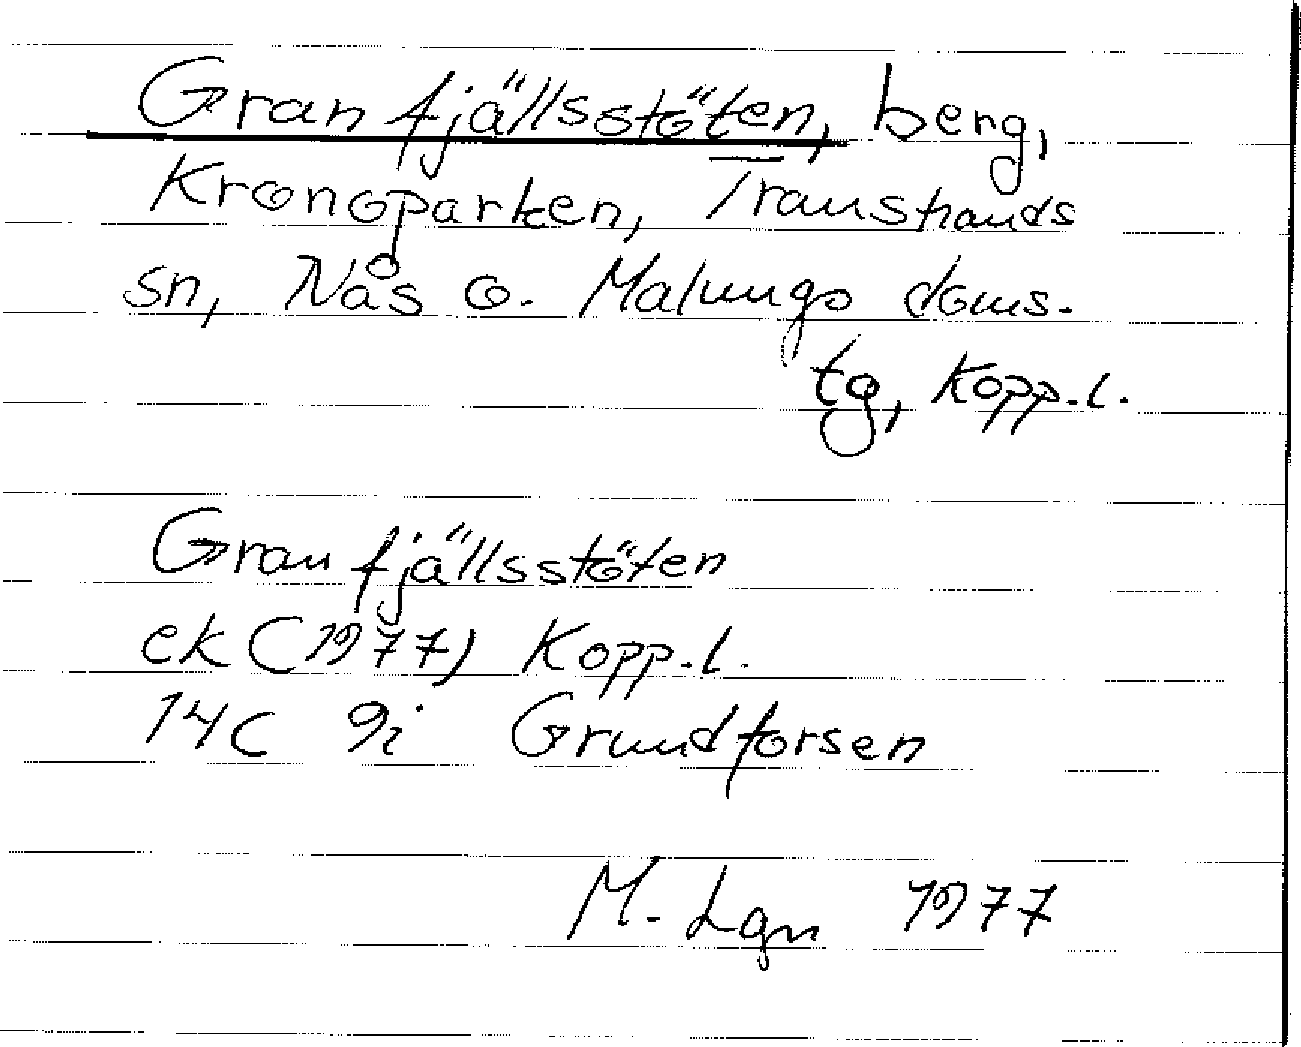 Granfjällsstöten, berg,
Kronoparken, Transtrands
sn, Nås o. Malungs doms.
tg, Kopp.l.
Granfjällsstöten
ek (1977) Kopp.l.
14C 9i Grundforsen
M. Lgn 1977